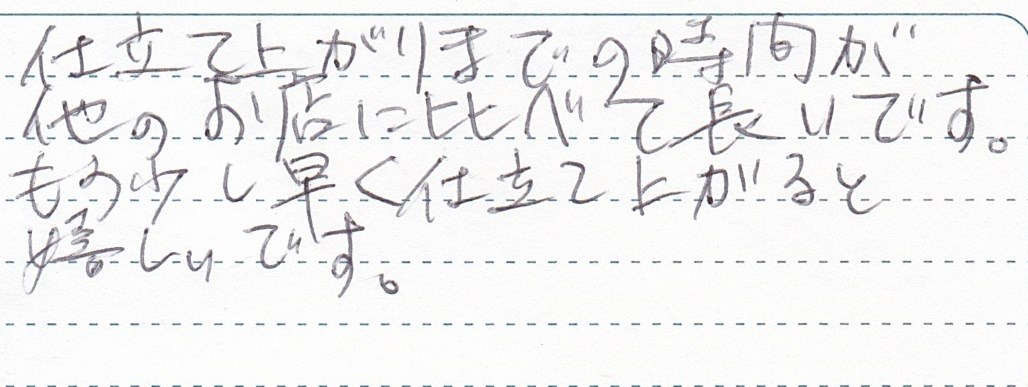 仕立て上がりまでの時間が
他のお店に比べて長いです。
もう少し早く仕立て上がると
嬉しいです。